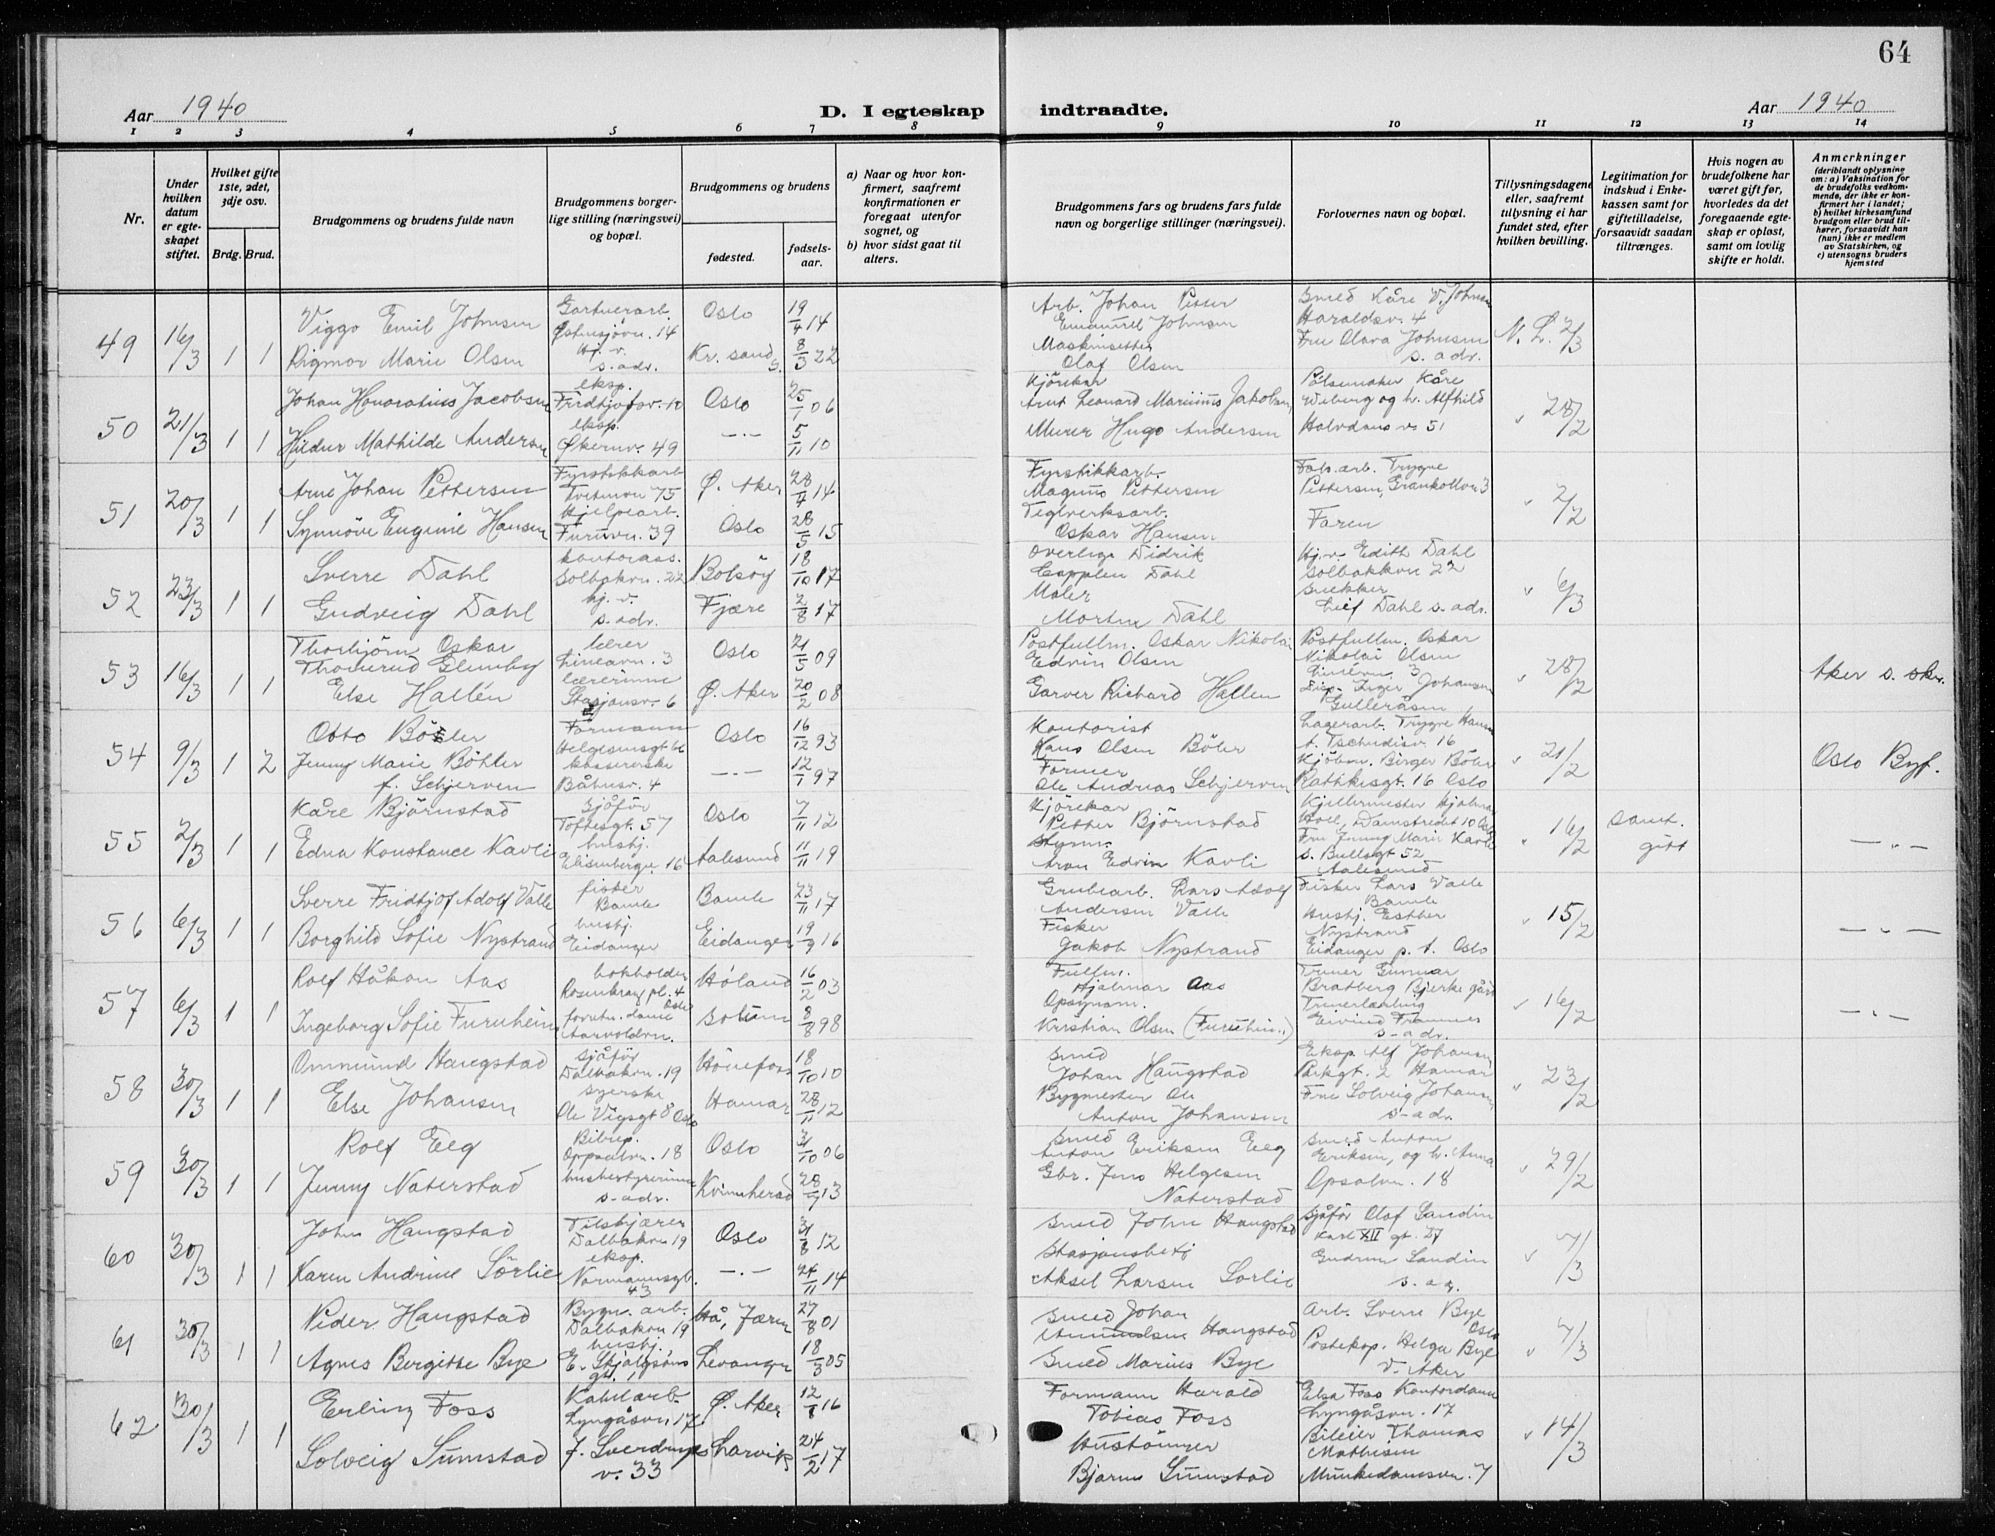 64
Aar 1940
D. I egteskap indtraadte.
Aar 1940
1 2 3 4 5 6 7 8 9 10 11 12 13 14
Nr.
Under hvilken datum er egteskapet stiftet.
Hvilket gifte 1ste, 2det, 3dje osv.
Brdg. Brud.
Brudgommens og brudens fulde navn
Brudgommens borgerlige stilling (næringsvei) og bopæl.
Brudgommens og brudens
fødested.
fødselsaar.
a) Naar og hvor konfirmert, saafremt konfirmationen er foregaat utenfor sognet, og
b) hvor sidst gaat til alters.
Brudgommens fars og brudens fars fulde navn og borgerlige stillinger (næringsvei).
Forlovernes navn og bopæl.
Tillysningsdagene eller, saafremt tillysning ei har fundet sted, efter hvilken bevilling.
Legitimation for indskud i Enkekassen samt for giftetilladelse, forsaavidt saadan tiltrænges.
Hvis nogen av brudefolkene har været gift før, hvorledes da det foregaaende egteskap er opløst, samt om lovlig skifte er holdt.
Anmerkninger (deriblandt oplysning om: a) Vaksination for de brudefolks vedkommende, der ikke er konfirmert her i landet; b) hvilket kirkesamfund brudgom eller brud tilhører, forsaavidt han (hun) ikke er medlem av Statskirken, og c) utensogns bruders hjemsted
49 16/3 1 1
Viggo Emil Johnsen
Gartnerarb. Østensjøvn. 14
Oslo 19/4 14
Arb. Johan Petter Emanuel Johnsen
Smed Kåre V. Johnsen Haraldsv. 4
N. L. 2/3
Rigmor Marie Olsen
Hj. v. s. adr.
Kr. sand S. 8/3 22
Maskinsetter Olaf Olsen
Fru Clara Johnsen s. adr.
50 21/3 1 1
Johan Honoratius Jacobsen
eksp. Fridtjofsv. 10
Oslo 25/1 06
Kjørekar Arnt Leonard Marinius Jakobsen
Pølsemaker Kåre Wiberg og h. Alfhild
" 28/2
Hildur Mathilde Andersen
eksp. Økernv. 49
-"- 5/11 10
Murer Hugo Andersen
Halvdans v. 51
51 20/3 1 1
Arne Johan Pettersen
Fyrstikkarb. Tvetenvn 75
Ø. Aker 28/4 14
Fyrstikkarb. Magnus Pettersen
Fab. arb. Trygve Pettersen, Grankollvn 3
" 2/2
Synnöve Eugenie Hansen
hjelpearb. Furuvn. 39
Oslo 28/5 15
Teglverksarb. Oskar Hansen
Faren
52 23/3 1 1
Sverre Dahl
kontorass. Solbakvn. 22
Bolsöy 18/10 17
Overlege Didrik Cappelen Dahl
Hj. v. Edith Dahl Solbakkvn 22
" 6/3
Gudveig Dahl
hj. v. s. adr.
Fjære 2/8 17
Maler Morten Dahl
Snekker Leif Dahl s. adr.
53 16/3 1 1
Thorbjörn Oskar Thorerud Glemby
lærer Lineavn. 3
Oslo 21/5 09
Postfullm. Oskar Nikolai Edvin Olsen
Postfullm. Oskar Nikolai Olsen Lineavn. 3
" 28/2
Aker s. skr.
Else Hallén
lærerinne Stasjonsv. 6
Ø. Aker 20/2 08
Garver Richard Hallen
Inger Johansen Gulleråsen
54 9/3 1 2
Otto Böhler
Formann Helgesensgt 66
Oslo 16/12 93
Kontorist Hans Olsen Böler
Lagerarb. Trygve Hansen A. Tschudisv. 16
" 21/2
Oslo Byf.
Jenny Marie Böhler f. Schjerven
kassererske Båhusv. 4
-"- 12/1 97
Former Ole Andreas Schjerven
Kjöbm. Birger Böler Rathkesgt. 16 Oslo
55 2/3 1 1
Kåre Björnstad
Sjåfør Toftesgt. 57
Oslo 7/11 12
Kjörekar Petter Björnstad
Kjellermester Hjalmar Damstredet 10 Oslo
" 16/2
Samt. gitt
-"-
Edna Konstance Kavli
hushj. Elisenbergv. 16
Aalesund 11/11 19
Styrm. Aron Edvin Kavli
Fru Jenny Marie Kavli s. Bullsgt 52 Aalesund
56 6/3 1 1
Sverre Fridtjof Adolf Valle
fisker Bamle
Bamle 23/11 17
Grubearb. Lars Adolf Andersen Valle
Fisker Lars Valle Bamle
" 15/2
-"-
Borghild Sofie Nystrand
hushj. Eidanger
Eidanger 19/9 16
Fisker Jakob Nystrand
Hushj. Esther Nystrand Eidanger p. t. Oslo
57 6/3 1 1
Rolf Håkon Aas
bokholder Rosenkrantz pl. 4 Oslo
Höland 16/2 03
Fullm. Hjalmar Aas
Gunnar Bratberg Bjerke gård
" 16/2
-"-
Ingeborg Sofie Furuheim
forretn. dame Aarvoldvn.
Solum 8/8 98
Opsynsm. Kristian Olsen (Furuheim)
Eivind s-adr.
58 30/3 1 1
Ommund Haugstad
Sjåfør Dalbakvn. 19
Hönefoss 18/10 10
Smed Johan Haugstad
Eksp. Alf Johansen Parkgt. 2 Hamar
" 23/2
Else Johansen
syerske Ole Vigsgt 8 Oslo
Hamar 28/11 12
Bygmester Ole Anton Johansen
Fru Solveig Johansen s-adr.
59 30/3 1 1
Rolf Eeg
Bilrep. Oppsalvn. 18
Oslo 3/10 06
Smed Anton Eriksen Eeg
Smed Anton Eriksen, og h. Anna
" 29/2
Jenny Naterstad
husbestyrerinne s-adr.
Kvinnherad 28/9 13
Gbr. Jens Helgesen Naterstad
Opsalvn. 18
60 30/3 1 1
John Haugstad
Dalbakvn 19
Oslo 3/8 12
Smed John Haugstad
Sjåför Olaf Sandin Karl XII gt. 27
" 7/3
Karen Andrine Sörlie
eksp. Normannsgt. 43
-"- 24/11 14
Stasjonsbetj Aksel Larsen Sorlie
Gudrun Sandin s. ad.
61 30/3 1 1
Peder Haugstad
Bygn. arb. Dalbakvn 19
Hå, Jæren 27/8 01
Smed Johan Ammundsen Haugstad
Arb. Sverre Bye Oslo
" 7/3
Agnes Bergitte Bye
hushj. E. Skjalgsöns gt. 1
Levanger 18/3 05
Smed Marius Bye
Posteksp. Helga Bye V. Aker
62 30/3 1 1
Erling Foss
Kabelarb. Lyngåsvn. 17
Ø. Aker 12/8 16
Formann Harald Tobias Foss
Elsa Foss Kontordame Lyngåsvn. 17
" 14/3
Solveig Sumstad
J. Sverdrups v. 33
Larvik 24/2 17
Hustömmer Bjarne Sumstad
Bileier Thomas Mathisen Munkedamsvn. 7